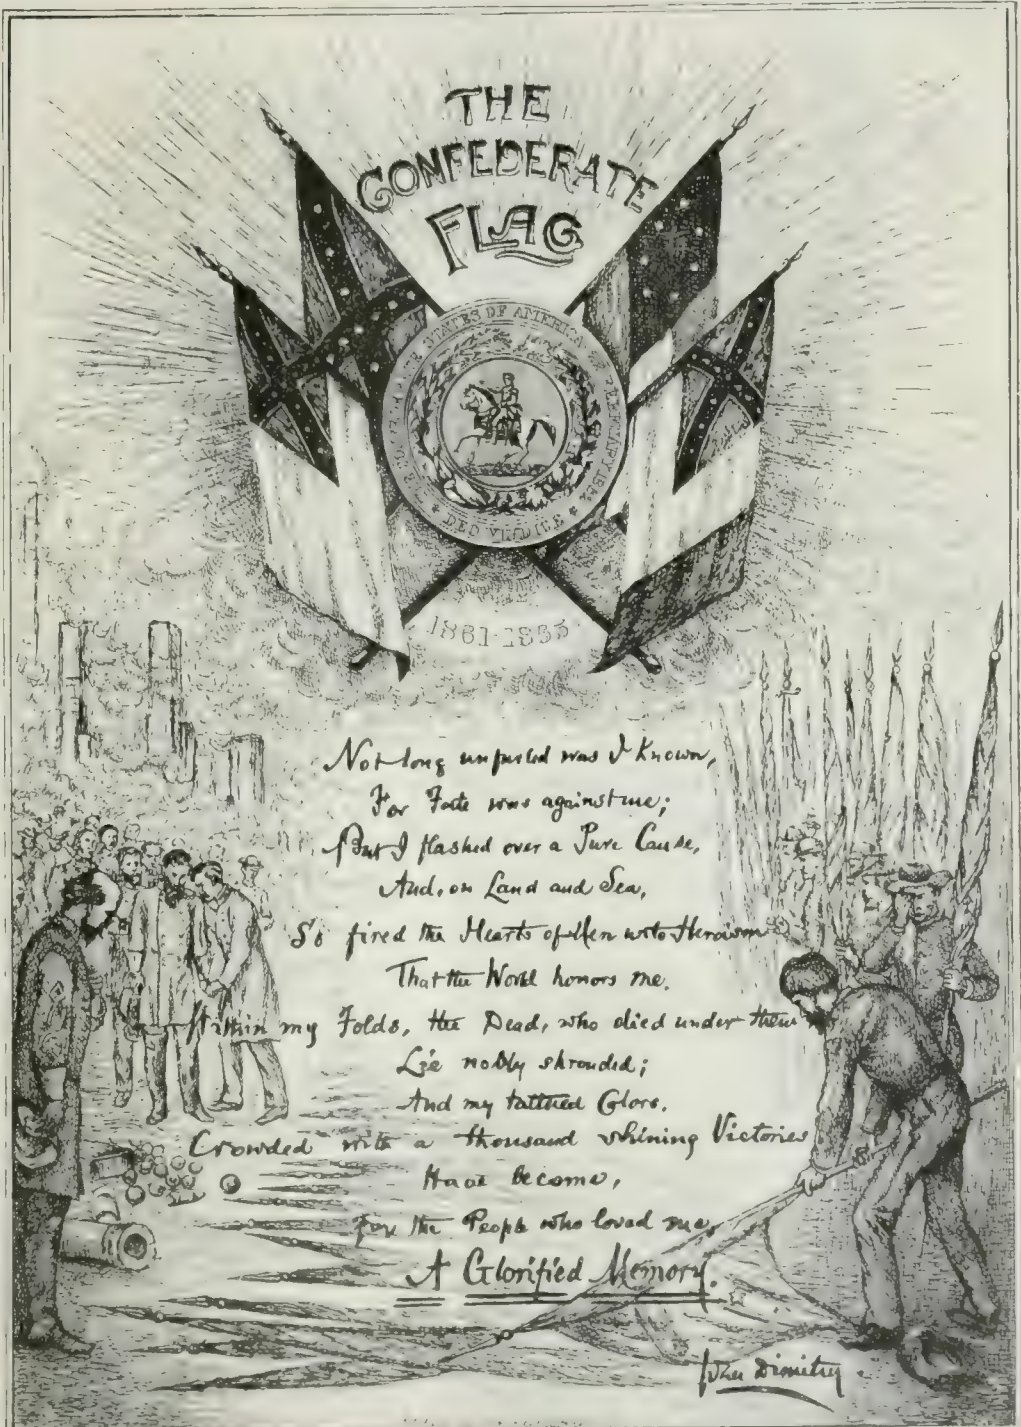 THE
CONFEDERATE
FLAG
STATES OF AMERICA
DEO VINDICE
1861-1865
Not long unfurled was I Known,
For Fate was against me;
But I flashed over a Pure Cause,
And, on Land and Sea,
So fired the Hearts of Men unto Heroism
That the World honors me.
Within my Folds, the Dead, who died under them
Lie nobly shrouded;
And my tattered Colors,
Crowded with a thousand shining Victories
Have become,
For the People who loved me,
A Glorified Memory.
John Dimitry.